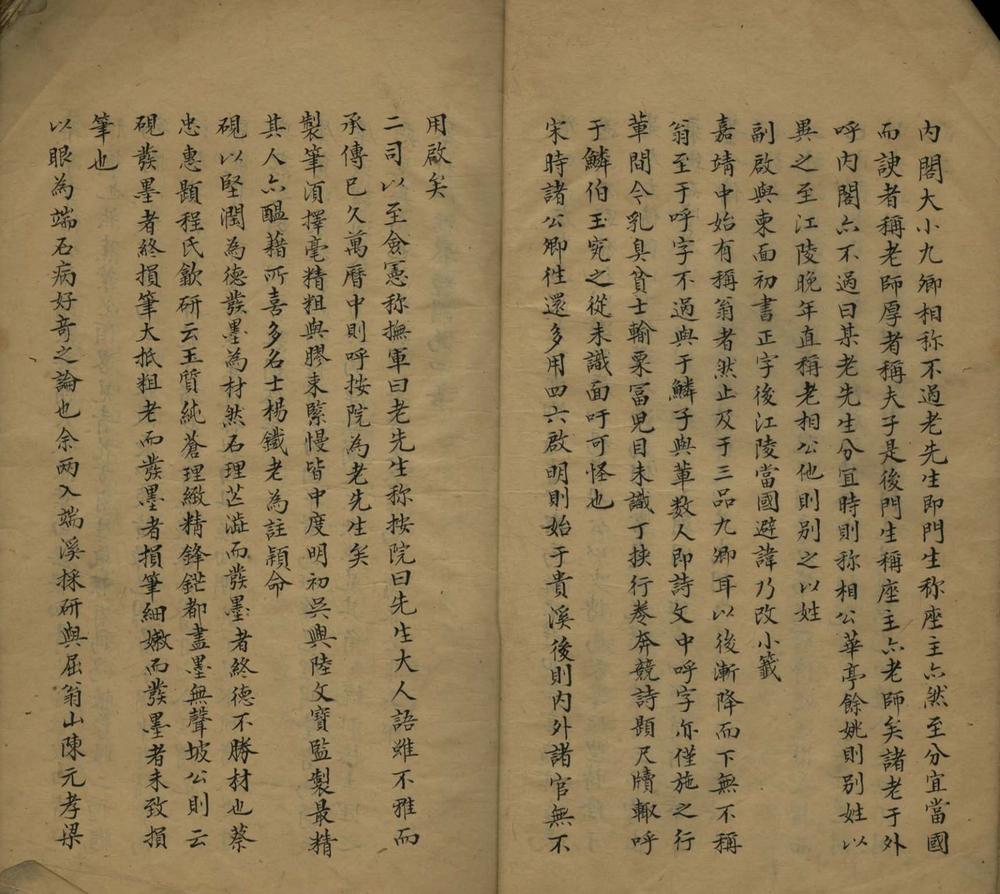 內閣大小九卿相称不過老先生即門生称座主亦然至分宜當國
而諛者稱老師厚者稱夫子是後門生稱座主亦老師矣諸老于外
呼内閣亦不過曰某老先生分宜時則称相公華亭餘姚則别姓以
異之至江陵晚年直稱老相公他則别之以姓
副啟與東面初書正字後江陵當國避諱乃改小籖
嘉靖中始有稱翁者然止及于三品九卿耳以後漸降而下無不稱
翁至于呼字不過與于鱗子與軰数人即詩文中呼字亦僅施之行
軰間今乳臭貧士輸粟冨児目未識丁挾行卷奔競詩題尺牘輙呼
于鱗伯玉究之從未識面吁可怪也
宋時諸公卿徃還多用四六啟明則始于貴溪後則内外諸官無不
用啟矣
二司以至僉憲称撫軍曰老先生称按院曰先生大人語雖不雅而
承傳已久萬曆中則呼按院為老先生矣
製筆湏擇毫精粗與膠束緊慢皆中度明初吳興陸文寶監製最精
其人亦醖藉所喜多名士楊鐵老為註穎命
硯以堅潤為德發墨為材然石理芒澁而發墨者終德不勝材也蔡
忠惠題程氏歙研云玉質純蒼理緻精鋒鋩都盡墨無聲坡公則云
硯發墨者終損筆大抵粗老而發墨者損筆細嫩而發墨者未致損
筆也
以眼為端石病好竒之論也余兩入端溪採研與屈翁山陳元孝梁